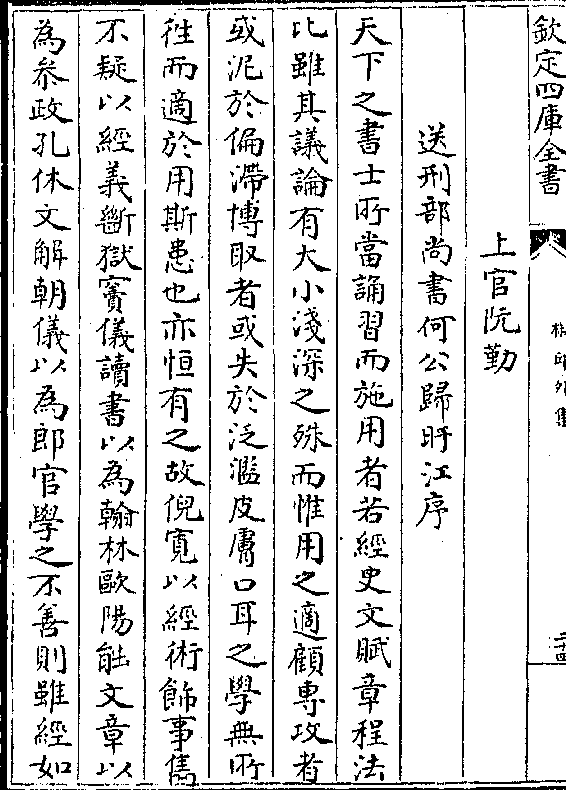 欽定四庫全書
上官阮勤
送刑部尚書何公歸盱江序
天下之書士所當誦習而施用者若經史文賦章程法
比雖其議論有大小淺深之殊而惟用之適顧専攻者
或泥於偏滯博取者或失於泛濫皮膚口耳之學無所
徃而適於用斯患也亦恒有之故倪寛以經術飾事雋
不疑以經義斷獄竇儀讀書以為翰林歐陽能文章以
為參政孔休文解朝儀以為郎官學之不善則雖經如